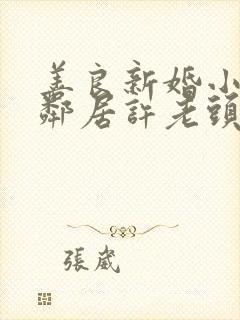 善良新婚小
鄰居許老頭
張崴